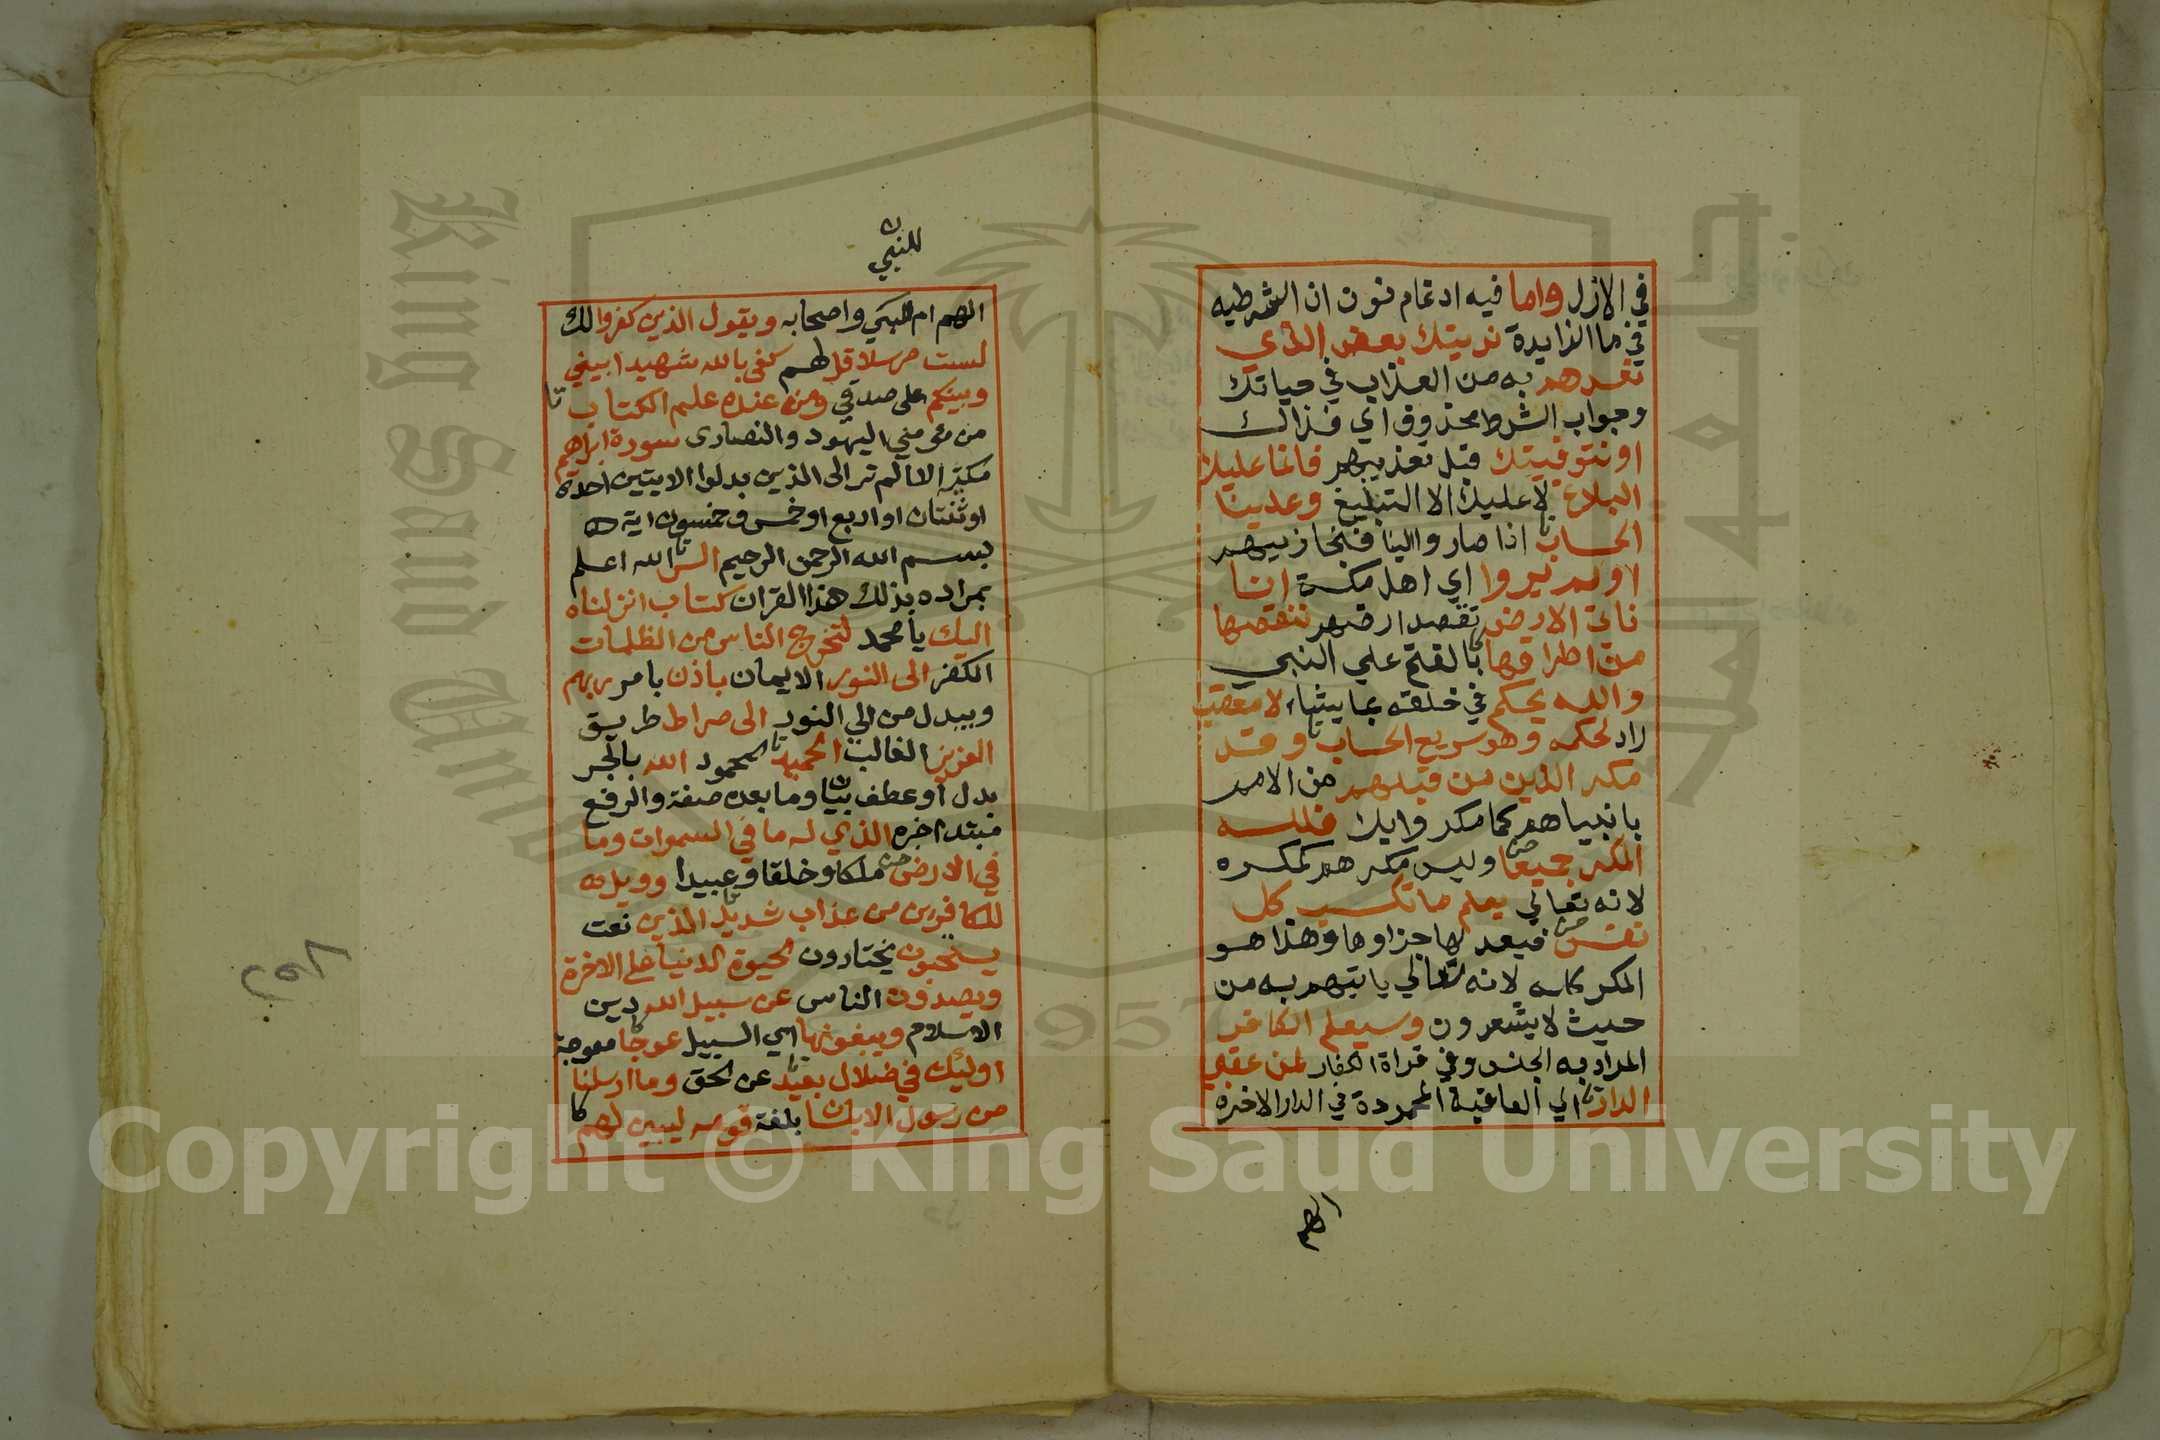 في الازل واما فيه ادغام نون ان الشرطيه
في ما الزايدة نرينك بعض الذي
نعدهم به من العذاب في حياتك
وجواب الشرط محذوف اي فذالك
او نتوفينك قبل تعذيبهم فانما عليك
البلاغ لا عليك الا التبليغ وعلينا
الحساب اذا صاروا الينا فنجازيهم
اولم يروا اي اهل مكة انا
ناتي الارض نقصد ارضهم ننقصها
من اطرافها بالفتح علي النبي
والله يحكم في خلقه بما يشاء لا معقب
راد لحكمه وهو سريع الحساب وقد
مكر الذين من قبلهم من الامم
بانبياهم كما مكروا بك فلله
المكر جميعا وليس مكرهم كمكره
لانه تعالي يعلم ما تكسب كل
نفس فيعد لها جزاوها وهذا هو
المكر كله لانه تعالي ياتيهم به من
حيث لا يشعرون وسيعلم الكافر
المراد به الجنس وفي قراة الكفار لمن عقبي
الدار اي العاقبة المحمودة في الدار الاخرة
الهم
للنبي
الهم ام للنبي واصحابه ويقول الذين كفروا لك
لست مرسلا قل لهم كفى بالله شهيدا بيني
وبينكم على صدقي ومن عنده علم الكتاب
من مومني اليهود والنصارى سورة ابراهيم
مكية الا الم تر الى الذين بدلوا الايتين احدى
او ثنتان او اربع او خمس وخمسون اية
بسم الله الرحمن الرحيم الر الله اعلم
بمراده بذلك هذا القران كتاب انزلناه
اليك يا محمد لتخرج الناس من الظلمات
الكفر الى النور الايمان باذن بامر ربهم
ويبدل من الي النور الى صراط طريق
العزيز الغالب الحميد المحمود الله بالجر
بدل او عطف بيان وما بعده صفة والرفع
مبتدا خبره الذي له ما في السموات وما
في الارض ملكا وخلقا وعبيدا وويل
للكافرين من عذاب شديد الذين نعت
يستحبون يختارون الحيوة الدنيا على الاخرة
ويصدون الناس عن سبيل الله دين
الاسلام ويبغونها اي السبيل عوجا معوجة
اوليك في ضلال بعيد عن الحق وما ارسلنا
من رسول الا بلسان بلغة قومه ليبين لهم
King Saud University
1957
Copyright © King Saud University